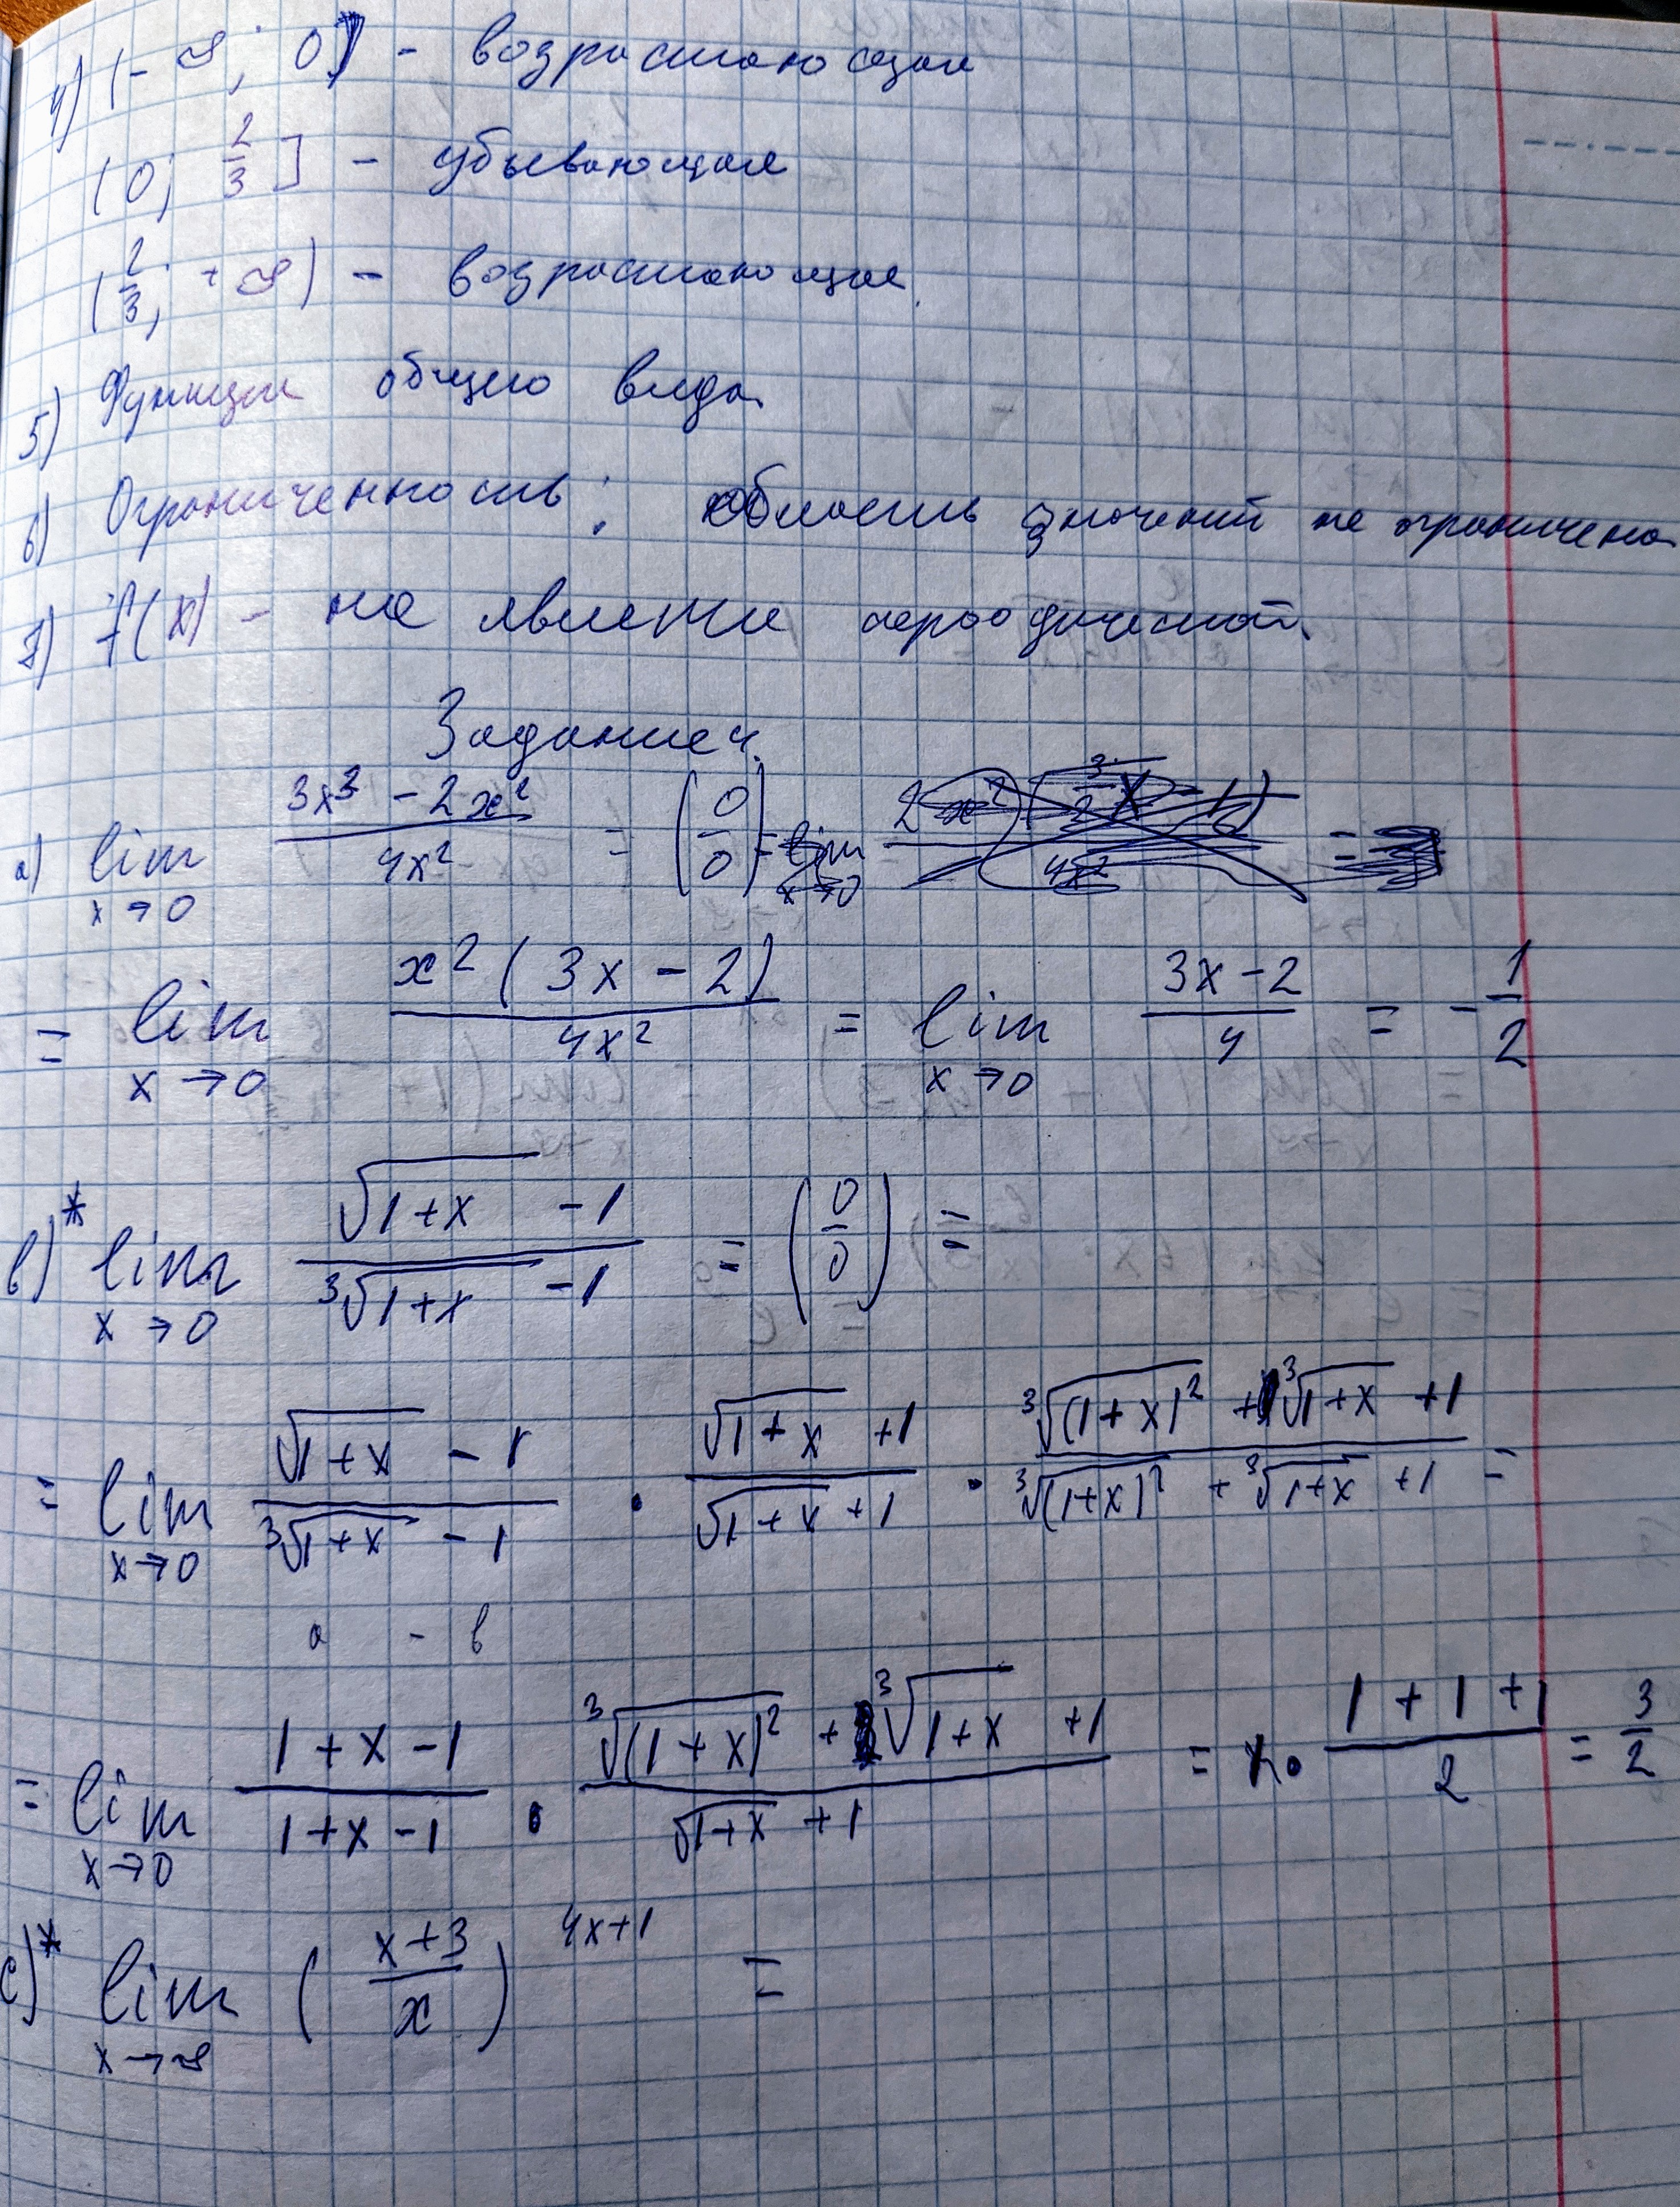 4) (-∞; 0) - возрастающая
(0; 2/3] - убывающая
(2/3; +∞) - возрастающая
5) Функция общего вида.
6) Ограниченность: область значений не ограничена
f(x) - не является периодической.
Задание 4.
a) lim x→0 (3x³ - 2x²)/(4x²) = (0/0) =
= lim x→0 x²(3x - 2)/(4x²) = lim x→0 (3x - 2)/4 = -1/2
b)* lim x→0 (√(1+x) - 1)/(³√(1+x) - 1) = (0/0) =
= lim x→0 (√(1+x) - 1)/(³√(1+x) - 1) · (√(1+x) + 1)/(√(1+x) + 1) · (³√((1+x)²) + ³√(1+x) + 1)/(³√((1+x)²) + ³√(1+x) + 1) =
a - b
= lim x→0 (1+x-1)/(1+x-1) · (³√((1+x)²) + ³√(1+x) + 1)/(√(1+x) + 1) = (1+1+1)/2 = 3/2
c)* lim x→∞ ((x+3)/x)^(4x+1) =